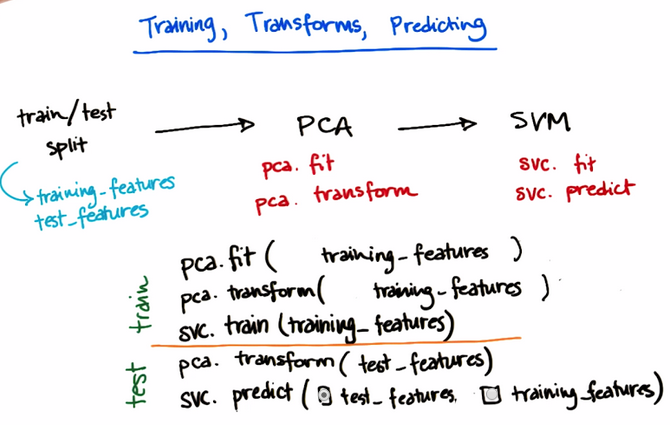 Training, Transforms, Predicting
train/test split → PCA → SVM
training_features
test_features
pca. fit
pca. transform
svc. fit
svc. predict
train
pca.fit( training_features )
pca. transform( training_features )
svc. train (training_features)
test
pca. transform( test_features)
svc. predict( test_features, training_features)